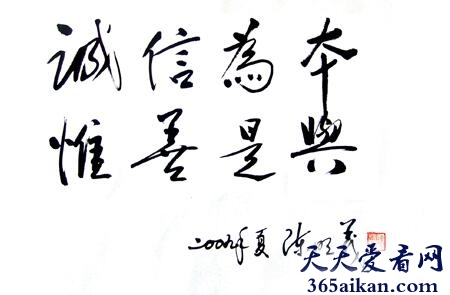 誠信為本
惟善是與
二00九年夏 陈明義
天天爱看网
365aikan.com